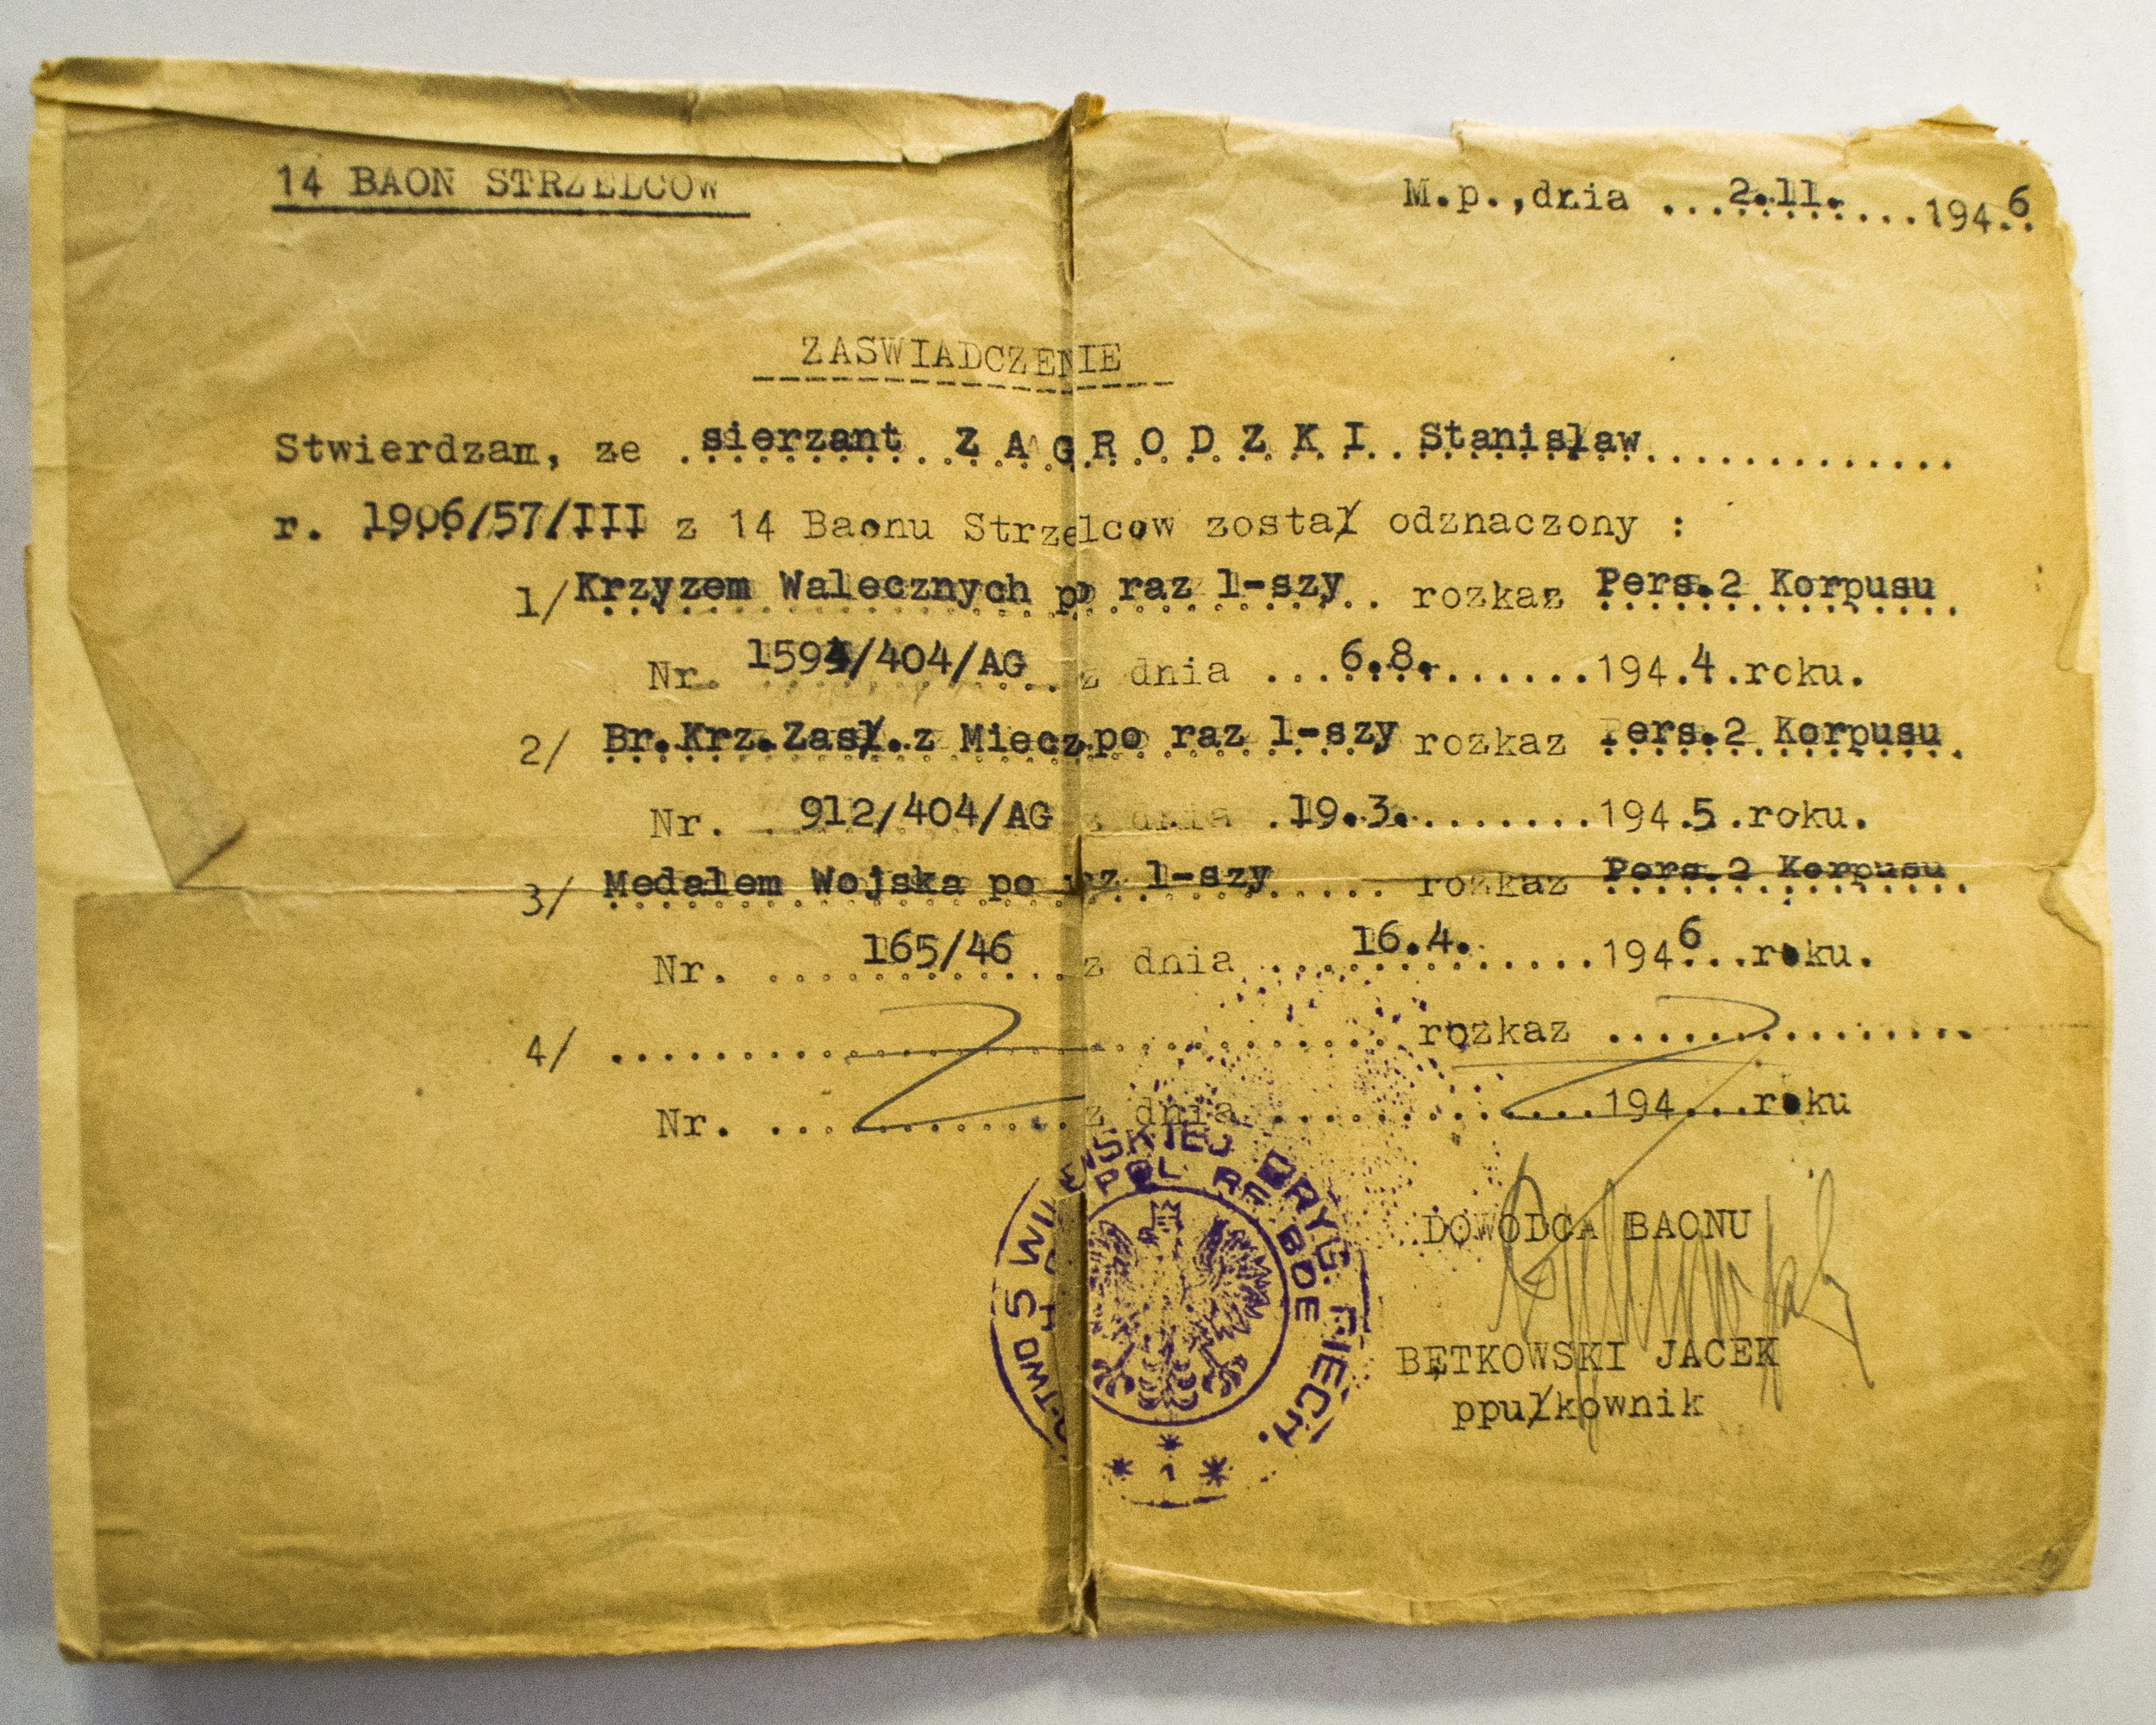 14 BAON STRZELCOW
M.p.,dnia ...2.11...........1946..
ZASWIADCZENIE
Stwierdzam, ze sierzant Z A G R O D Z K I Stanisław
r. 1906/57/III z 14 Baonu Strzelcow został odznaczony :
1/ Krzyzem Walecznych po raz 1-szy .. rozkaz Pers.2 Korpusu
Nr. /404/AG z dnia ...6.8..........194.4.roku.
2/ Br.Krz.Zasł.z Miecz po raz 1-szy rozkaz Pers.2 Korpusu
Nr. 912/404/AG z dnia .19.3.........194.5.roku.
3/ Medalem Wojska po raz 1-szy ..... rozkaz Pers.2 Korpusu
Nr. 165/46 z dnia ...16.4.......1946...roku.
4/ .............................. rozkaz ...............
Nr. ............... z dnia ...............194....roku
5 WILEŃSKIEJ BRYG. PIECH.
POL
1
DOWODCA BAONU
BĘTKOWSKI JACEK
ppułkownik